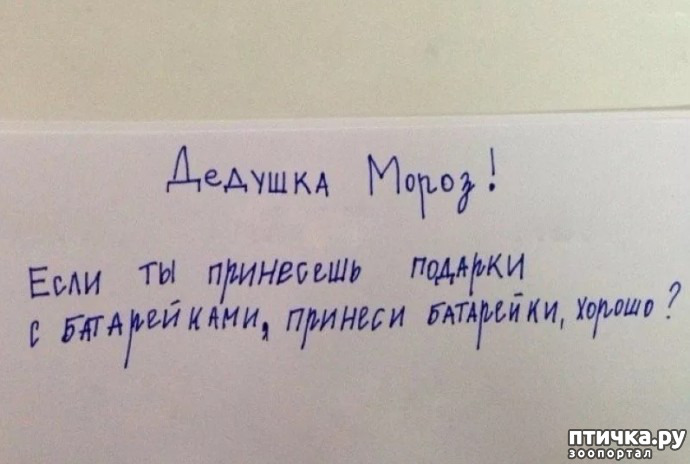 Дедушка Мороз!
Если ты принесешь подарки
с батарейками, принеси батарейки, хорошо?
птичка.ру
зоопортал